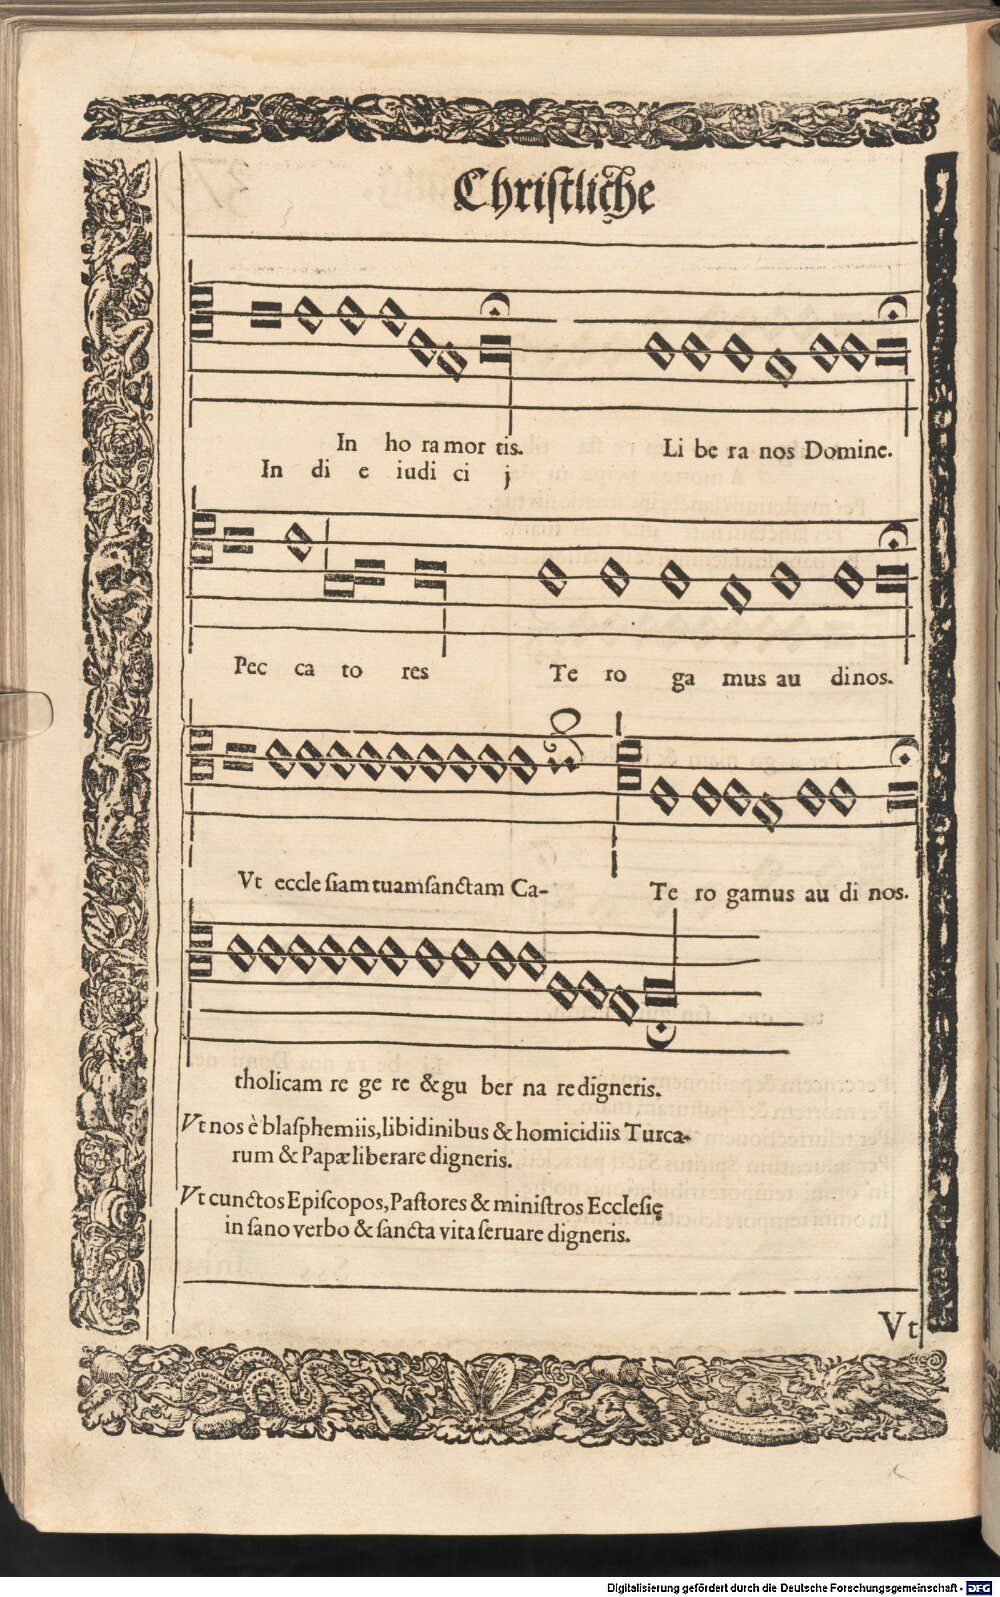 Chriſtliche
In ho ra mor tis. Li be ra nos Domine.
In di e iudi ci j
Pec ca to res Te ro ga mus au dinos.
Vt eccle ſiam tuamſanctam Ca- Te ro gamus au di nos.
tholicam re ge re & gu ber na re digneris.
Vt nos è blaſphemiis, libidinibus & homicidiis Turca-
rum & Papæ liberare digneris.
Vt cunctos Epiſcopos, Paſtores & miniſtros Eccleſię
in ſano verbo & ſancta vita ſeruare digneris.
Vt
Digitalisierung gefördert durch die Deutsche Forschungsgemeinschaft - DFG